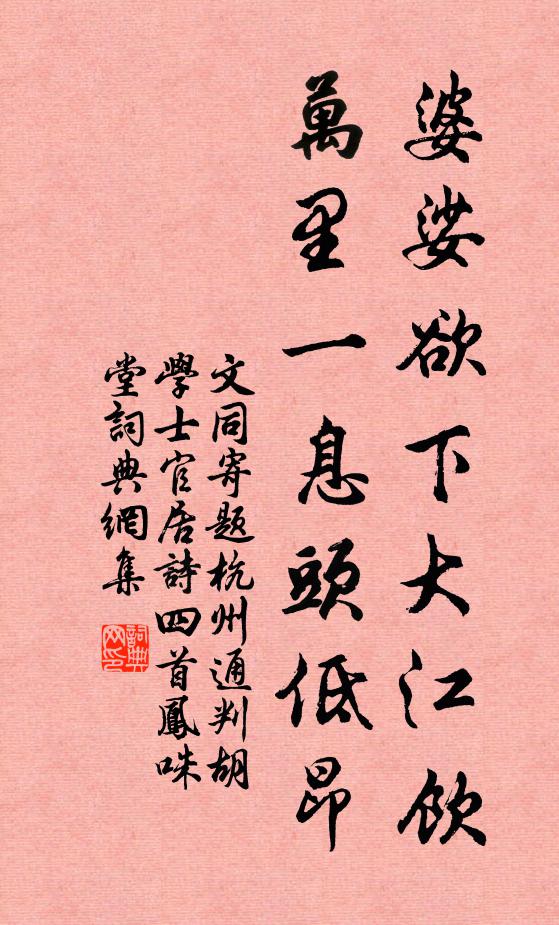 婆娑欲下大江飲
萬里一息頭低昂
文同寄題杭州通判胡
學士官居詩四首鳳咮
堂詞典網集
詞典
网印